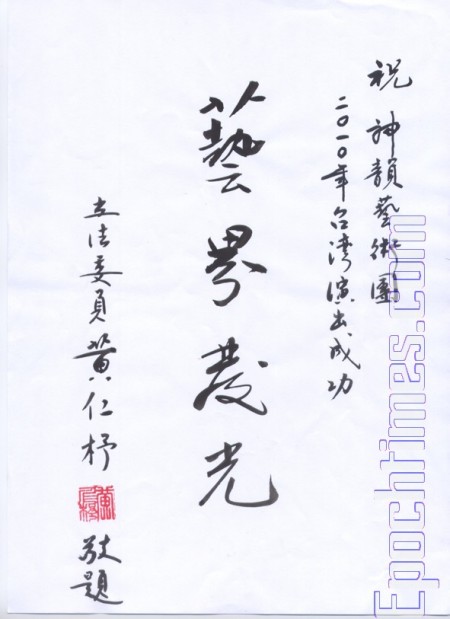 祝 神韻藝術團
二〇一〇年台灣演出成功
藝界發光
立法委員 黃仁杼 敬題
Epochtimes.com